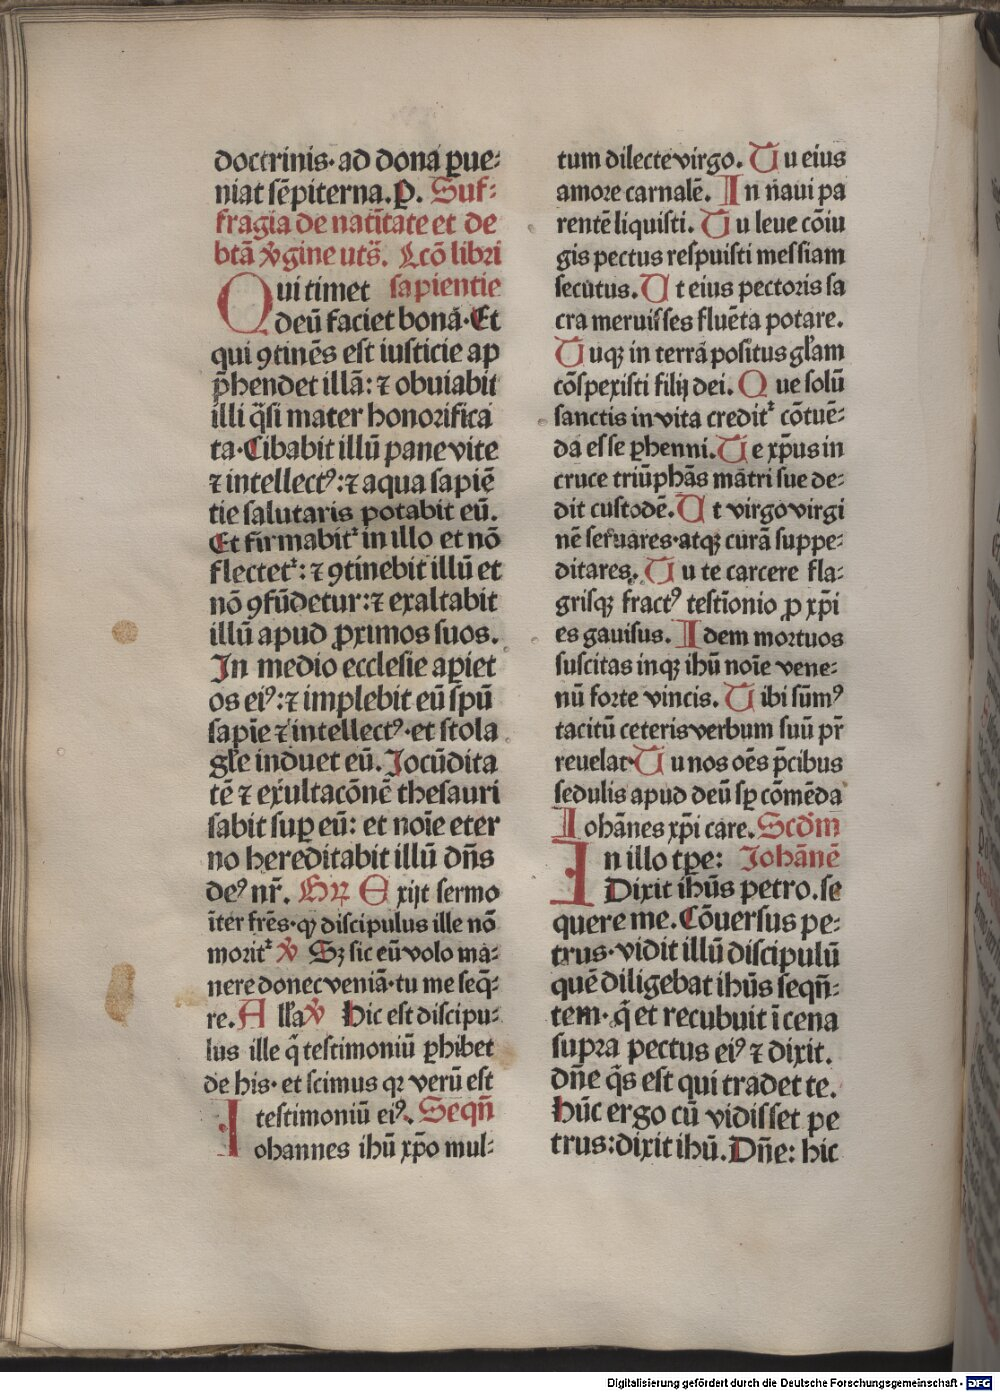 doctrinis· ad dona ꝑue-
niat sēpiterna. P̄. Suf-
fragia de natītate et de
btā v̄gine uts̄. Lcō libri
Qui timet sapientie
deū faciet bona·Et
qui ꝯtinēs est iusticie ap
p̄hendet illā: ⁊ obuiabit
illi q̄si mater honorifica
ta·Cibabit illū pane vite
⁊ intellectꝰ:⁊ aqua sapiē
tie salutaris potabit eū.
Et firmabitᷣ in illo et nō
flectetᷣ: ⁊ ꝯtinebit illū et
nō ꝯfūdetur:⁊ exaltabit
illū apud ꝓximos suos.
In medio ecclesie aꝑiet
os eiꝰ:⁊ implebit eū sp̄ū
sapīe ⁊ intellectꝰ·et stola
gl̄e induet eū. Jocūdita
tē ⁊ exultacōnē thesauri
sabit suꝑ eū: et noīe eter
no hereditabit illū dn̄s
deꝰ nr̄. Gr̄ Exijt sermo
īter frēs·qꝙ discipulus ille nō
moritᷣ v̄ Sꝫ sic eū volo ma-
nere donec veniā·tu me seq̄-
re. All̄a v̄ Hic est discipu-
lus ille q̄ testimoniū ꝑhibet
de his· et scimus qꝛ verū est
testimoniū eiꝰ. Seqn̄
Iohannes ihū xp̄o mul-
tum dilecte virgo. Tu eius
amore carnalē. In naui pa
rentē liquisti. Tu leue cōiu
gis pectus respuisti messiam
secutus. Ut eius pectoris sa
cra meruisses fluēta potare.
Tuqꝫ in terra positus gl̄am
cōspexisti filij dei. Que solū
sanctis in vita creditᷣ cōtuē-
da esse ꝑhenni. Te xp̄us in
cruce triūphās mātri sue de-
dit custodē. Ut virgo virgi
nē seruares·atqꝫ curā suppe-
ditares. Tu te carcere fla-
grisqꝫ fractꝰ testīonio ꝓ xp̄i
es gauisus. Idem mortuos
suscitas inqꝫ ihū noīe vene-
nū forte vincis. Tibi sūmꝰ
tacitū ceteris verbum suū pr̄
reuelat· Tu nos oēs p̄cibus
sedulis apud deū sꝑ cōmēda
Iohānes xp̄i care. Scdm
In illo tꝑe: Johānē
Dixit ihūs petro. se
quere me. Cōuersus pe-
trus· vidit illū discipulū
quē diligebat ihūs seqn̄-
tem· q̄ et recubuit ī cena
supra pectus eiꝰ ⁊ dixit.
dn̄e q̄s est qui tradet te.
Hūc ergo cū vidisset pe
trus:dixit ihū. Dn̄e: hic
Digitalisierung gefördert durch die Deutsche Forschungsgemeinschaft - DFG